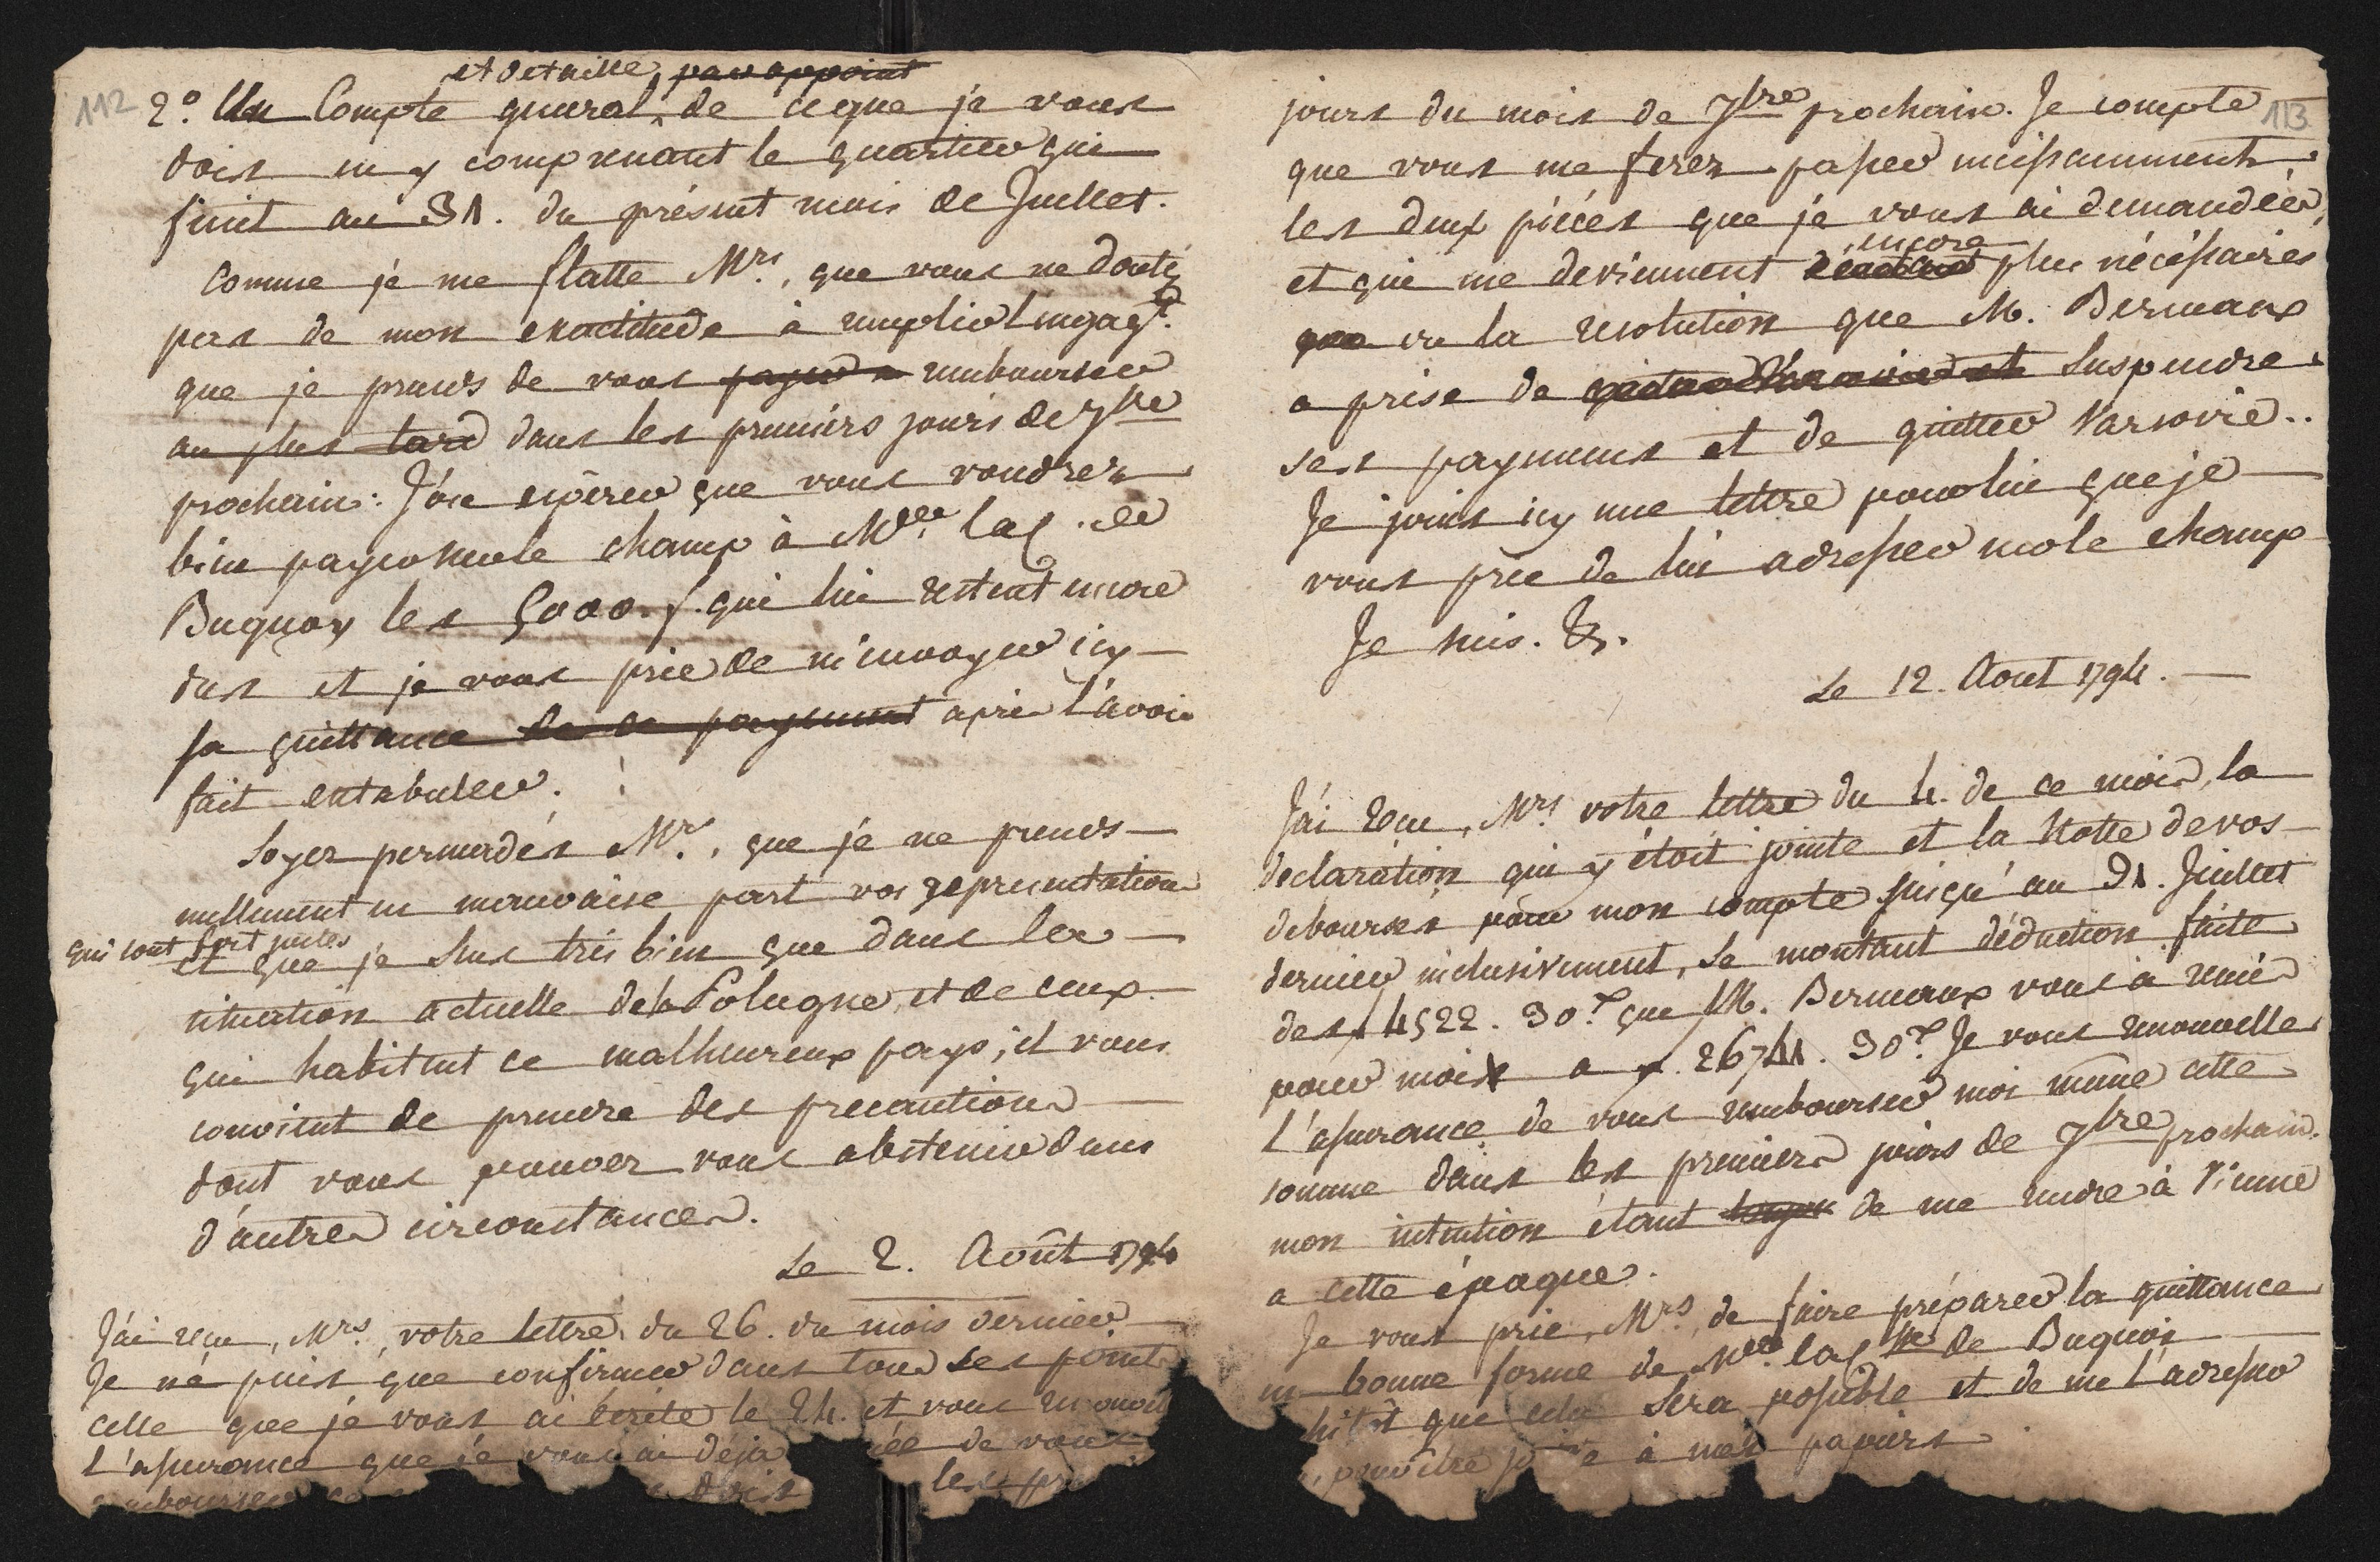 112
et detaillé par appoint
2.° Un Compte general, de ceque je vous
dois en y comprenant le quartier qui
finit au 31. du présent mois de Juillet.
Comme je me flatte Mrs., que vous ne doutéz
pas de mon exactitude à remplir l'engagt.
que je prends de vous payer a rembourser
au plus tard dans les premiers jours de 7bre
prochain: J'ôse espérer que vous voudrez
bien payer sur le champ à Mde. la C. de
Buquoy les 5000. f. qui lui restent encore
dus et je vous prie de m'envoyer icy
sa quittance de ce payement après l'avoir
fait entabuler.
Soyez persuadés Mrs., que je ne prends
nullement en mauvaise part vos représentations
qui sont fort justes
et que je sens très bien que dans la
situation actuelle de la Pologne, et de ceux
qui habitent ce malheureux pays, il vous
convient de prendre des precautions
dont vous pouvez vous abstenir dans
d'autres circonstances.
Le 2. Août 1794
J'ai reçu, Mrs, votre lettre du 26. du mois dernier
Je ne puis que confirmer dans tous ses points
celle que je vous ai écrite le 24. et vous renouvell
l'assurance que je vous ai déjà ée de vous
rembourser dois les pr
113
jours du mois de 7bre prochain. Je compte
que vous me ferez passer incessamment
les deux piéces que je vous ai demandées,
encore
et qui me deviennent plus nécéssaires
que vu la resolution que M. Bernaux
a prise de suspendre
ses payemens et de quitter Varsovie..
Je joins icy une lettre pour lui que je
vous prie de lui adresser sur le champ
Je suis. &.
Le 12. Aout 1794.
J'ai reçu, Mrs votre lettre du 4. de ce mois, la
declaration qui y étoit jointe et la Notte de vos
deboursés pour mon compte jusqu'au 31. Juillet
dernier inclusivement, se montant déduction faite
des f 4522. 30.x que M. Bernaux vous a remis
pour moi a f. 26741. 30.x Je vous renouvelle
l'assurance de vous rembourser moi même cette
somme dans les premiers jours de 7bre prochain.
mon intention étant de me rendre à Vienne
a cette époque.
Je vous prie, Mrs, de faire préparer la quittance
en bonne forme de Mde. la Csse de Buquoi
sitôt que cela sera possible et de me l'adresser
pour être jointe à mes papiers.